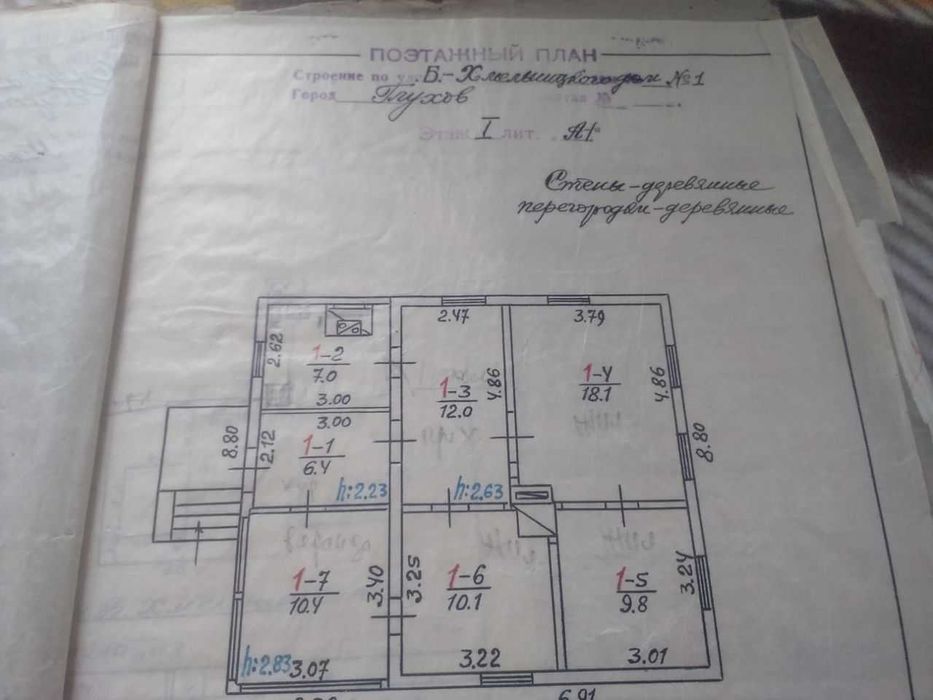 ПОЭТАЖНЫЙ ПЛАН
Строение по ул. Б.-Хмельницкого дом №1
Город Глухов
Этаж I лит. А1
Стены-деревянные
перегородки-деревянные
2.47
3.79
2.62
1-2
7.0
3.00
4.86
1-3
12.0
1-4
18.1
4.86
8.80
2.12
3.00
1-1
6.4
h:2.23
h:2.63
8.80
1-7
10.4
3.40
3.25
1-6
10.1
1-5
9.8
3.24
h:2.83
3.07
3.22
3.01
6.91